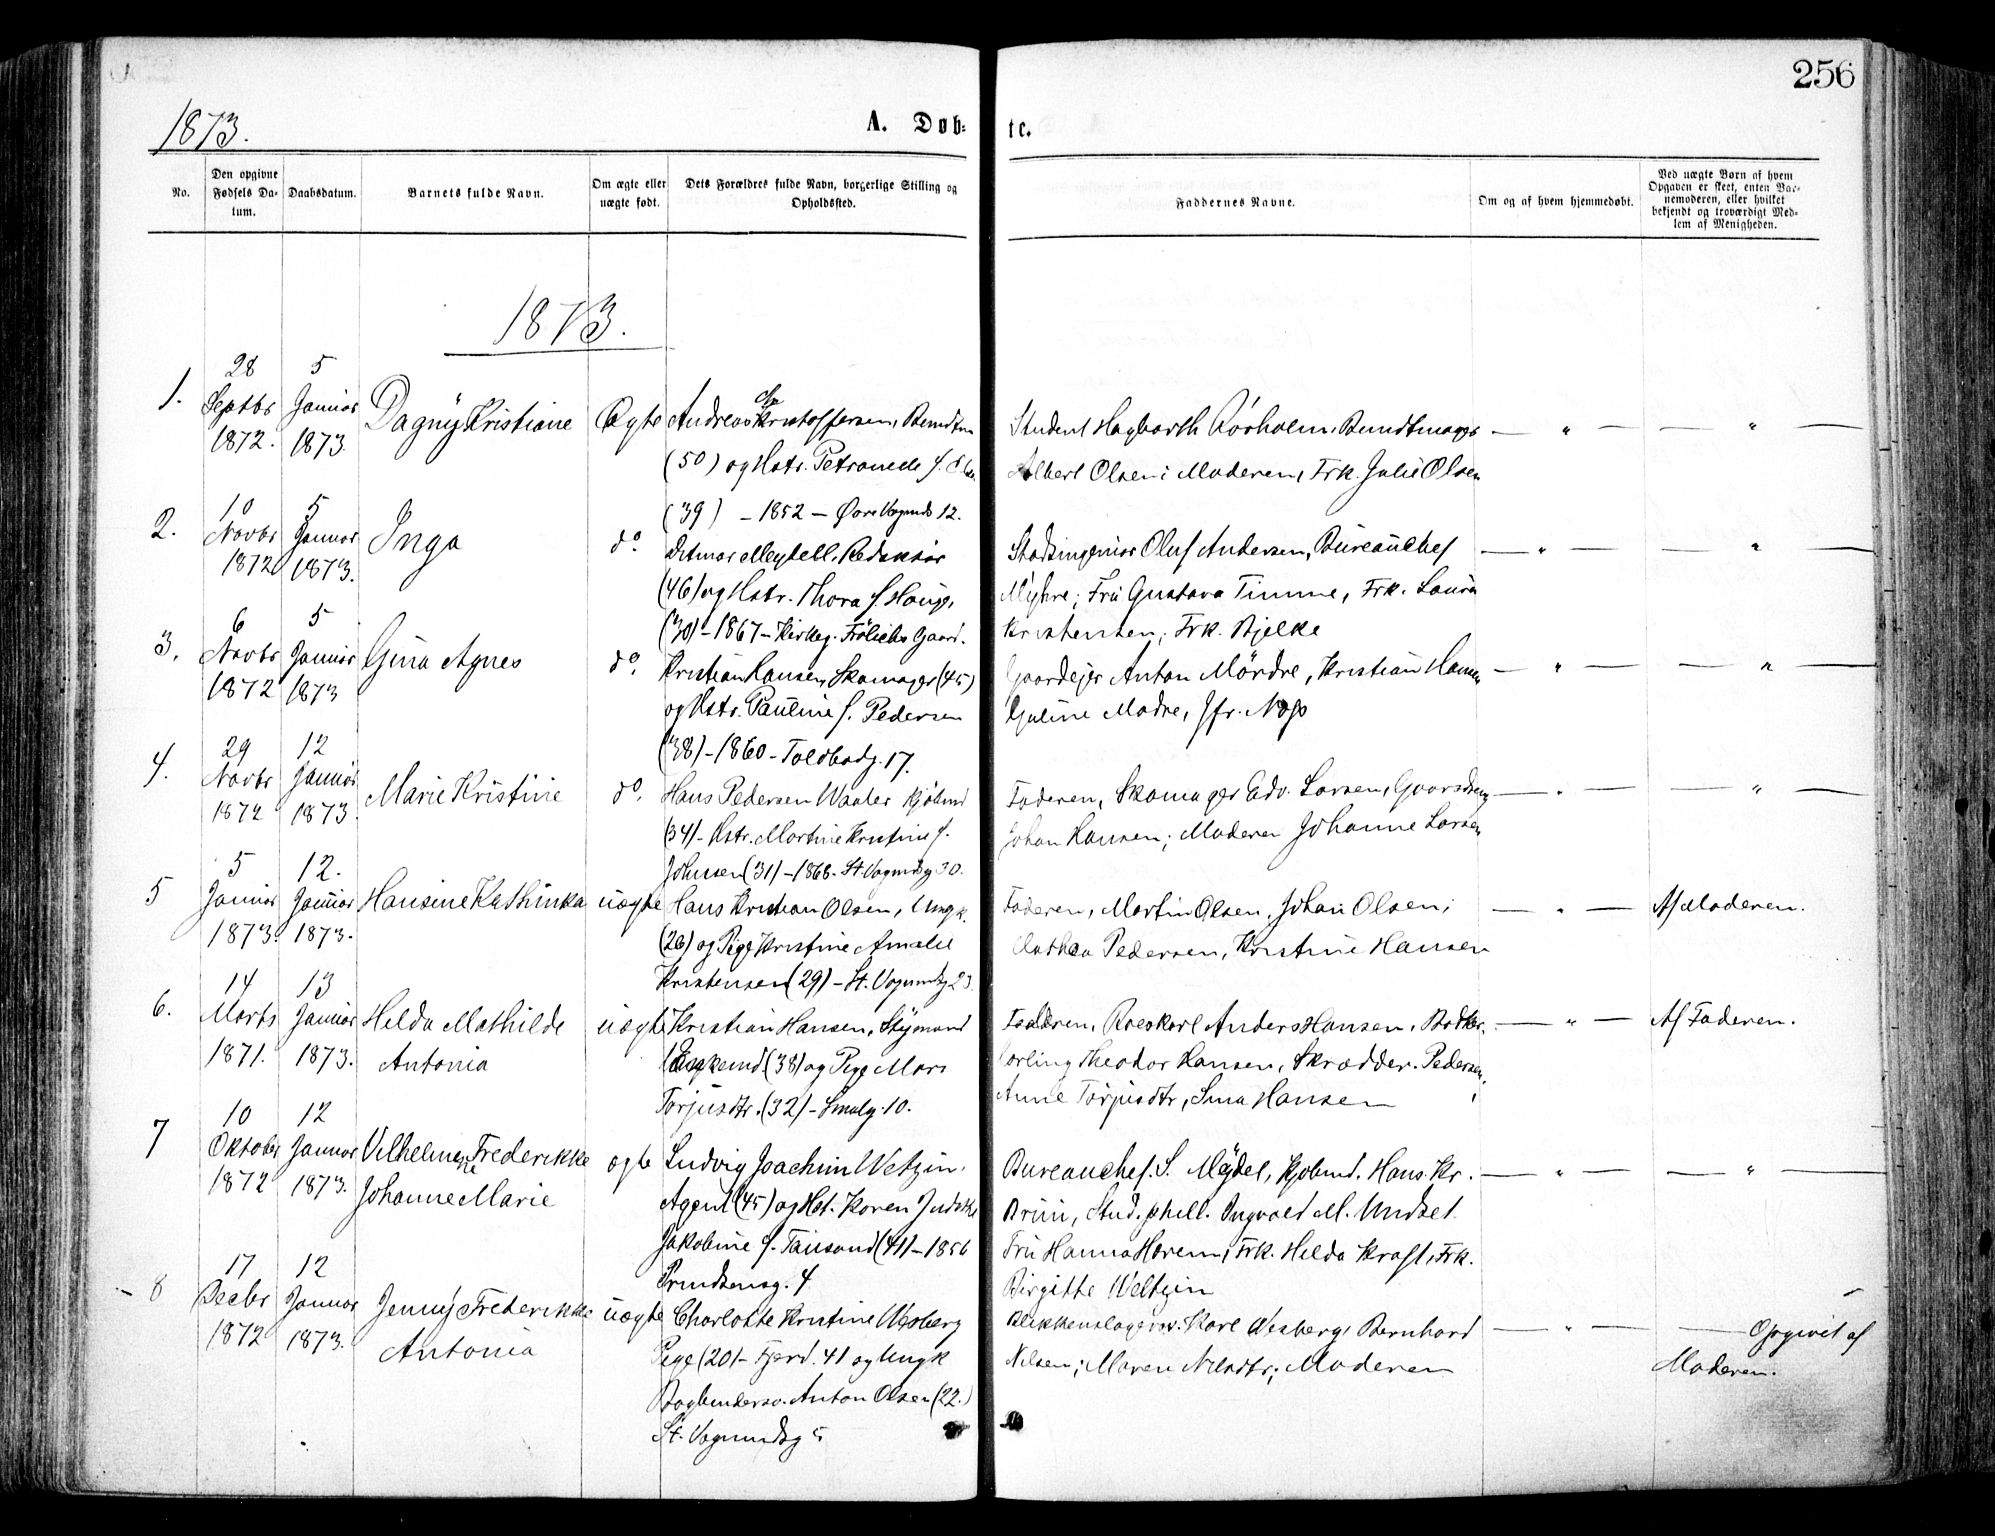 256
1873.
A. Døb-
te.
No.
Den opgivne
Fødsels Da-
tum.
Daabsdatum.
Barnets fulde Navn.
Om ægte eller
uægte født.
Dets Forældres fulde Navn, borgerlige Stilling og
Opholdssted.
Faddernes Navne.
Om og af hvem hjemmedøbt.
Ved uægte Børn af hvem
Opgaven er skeet, enten Bar-
nemoderen, eller hvilket
bekjendt og troværdigt Med-
lem af Menigheden.
1873.
1.
28
Septbr
1872.
5
Januar
1873.
Dagny Kristiane
Ægte
Andreas Kristoffersen,
(50) og Hstr. Petronede f.
(39) - 1852 - Øvre Vognmds 12.
Student Hagbarth Rørholm,
Albert Olsen; Moderen, Frk. Julie Olsen
— " — — " —
2.
10
Novbr
1872
5
Januar
1873.
Inga
do.
Ditmar Meydell, Redaktør
(46) og Hstr. Thora f. Hauge,
(30) - 1867 - Kirkeg. Frölichs Gaard.
Stadsingeniør Oluf Andersen, Bureauchef
Myhre; Fru Gustava Timme, Frk. Laura
Kristensen; Frk. Bjelke
— " — — " —
3.
6
Novbr
1872
5
Januar
1873
Gina Agnes
do.
Kristian Hansen, Skomager (45)
og Hstr. Pauline f. Pedersen
(38) - 1860 - Toldbodg. 17.
Gaardejer Anton Mördre, Kristian Hansen
Guline Modre, Jfr.
— " — — " —
4.
29
Novbr
1872
12
Januar
1873.
Marie Kristine
do.
Hans Pedersen Waaler kjøbmd
(34) - Hstr. Martine Kristine f.
Johnsen (31) - 1868 - St. Vognmdsg. 30.
Faderen, Skomager Edv. Larsen,
Johan Hansen; Moderen Johanne Larsen
— " — — " —
5
5
Januar
1873.
12.
Januar
1873.
Hansine Kathinka
uægte
Hans Kristian Olsen, Ungk.
(26) og Pige Kristine Amalie
Kristensen (29) - St. Vognmdsg 23.
Faderen, Martin Olsen, Johan Olsen;
Pedersen, Kristine Hansen
— " — Af Moderen.
6.
14
Marts
1871.
13
Januar
1873.
Hilda Mathilde
Antonia
uægte
Kristian Hansen, Styrmand
Enkemd (38) og Pige Mari
Torjusdtr. (32) - Smalg. 10.
Faderen, Roeskarl Anders Hansen,
Theodor Hansen, Skrædder. Pedersen;
Anne Torjusdtr, Sina Hansen
— " — Af Faderen.
7
10
Oktober
1872
12
Januar
1873.
Vilhelmine Frederikke
Johanne Marie
ægte
Ludvig Joachim Weltzin,
Agent (45) og Hst. Karen
Jakobine f. Tausand (41) - 1856
Prindsensg. 4
Bureauchef. S. Mejdel, Kjøbmd. Hans Kr.
Bruu, Stud. phil. Ingvald M. Undset.
Fru Hanna Horem, Frk. Hilda Kraft, Frk.
Birgitte Weltzin
— " — — " —
8
17
Decbr
1872
12
Januar
1873.
Jenny Frederikke
Antonia
uægte
Charlotte Kristine Wesberg
Pige (20) - Fjerd. 41 og Ungk
Bogbindersv. Anton Olsen (22.)
St. Vognmdsg 5
Blikkenslagersv. Karl Wesberg, Bernhard
Nilsen; Maren Nilsdtr; Moderen
— " — — Opgivet af
Moderen.